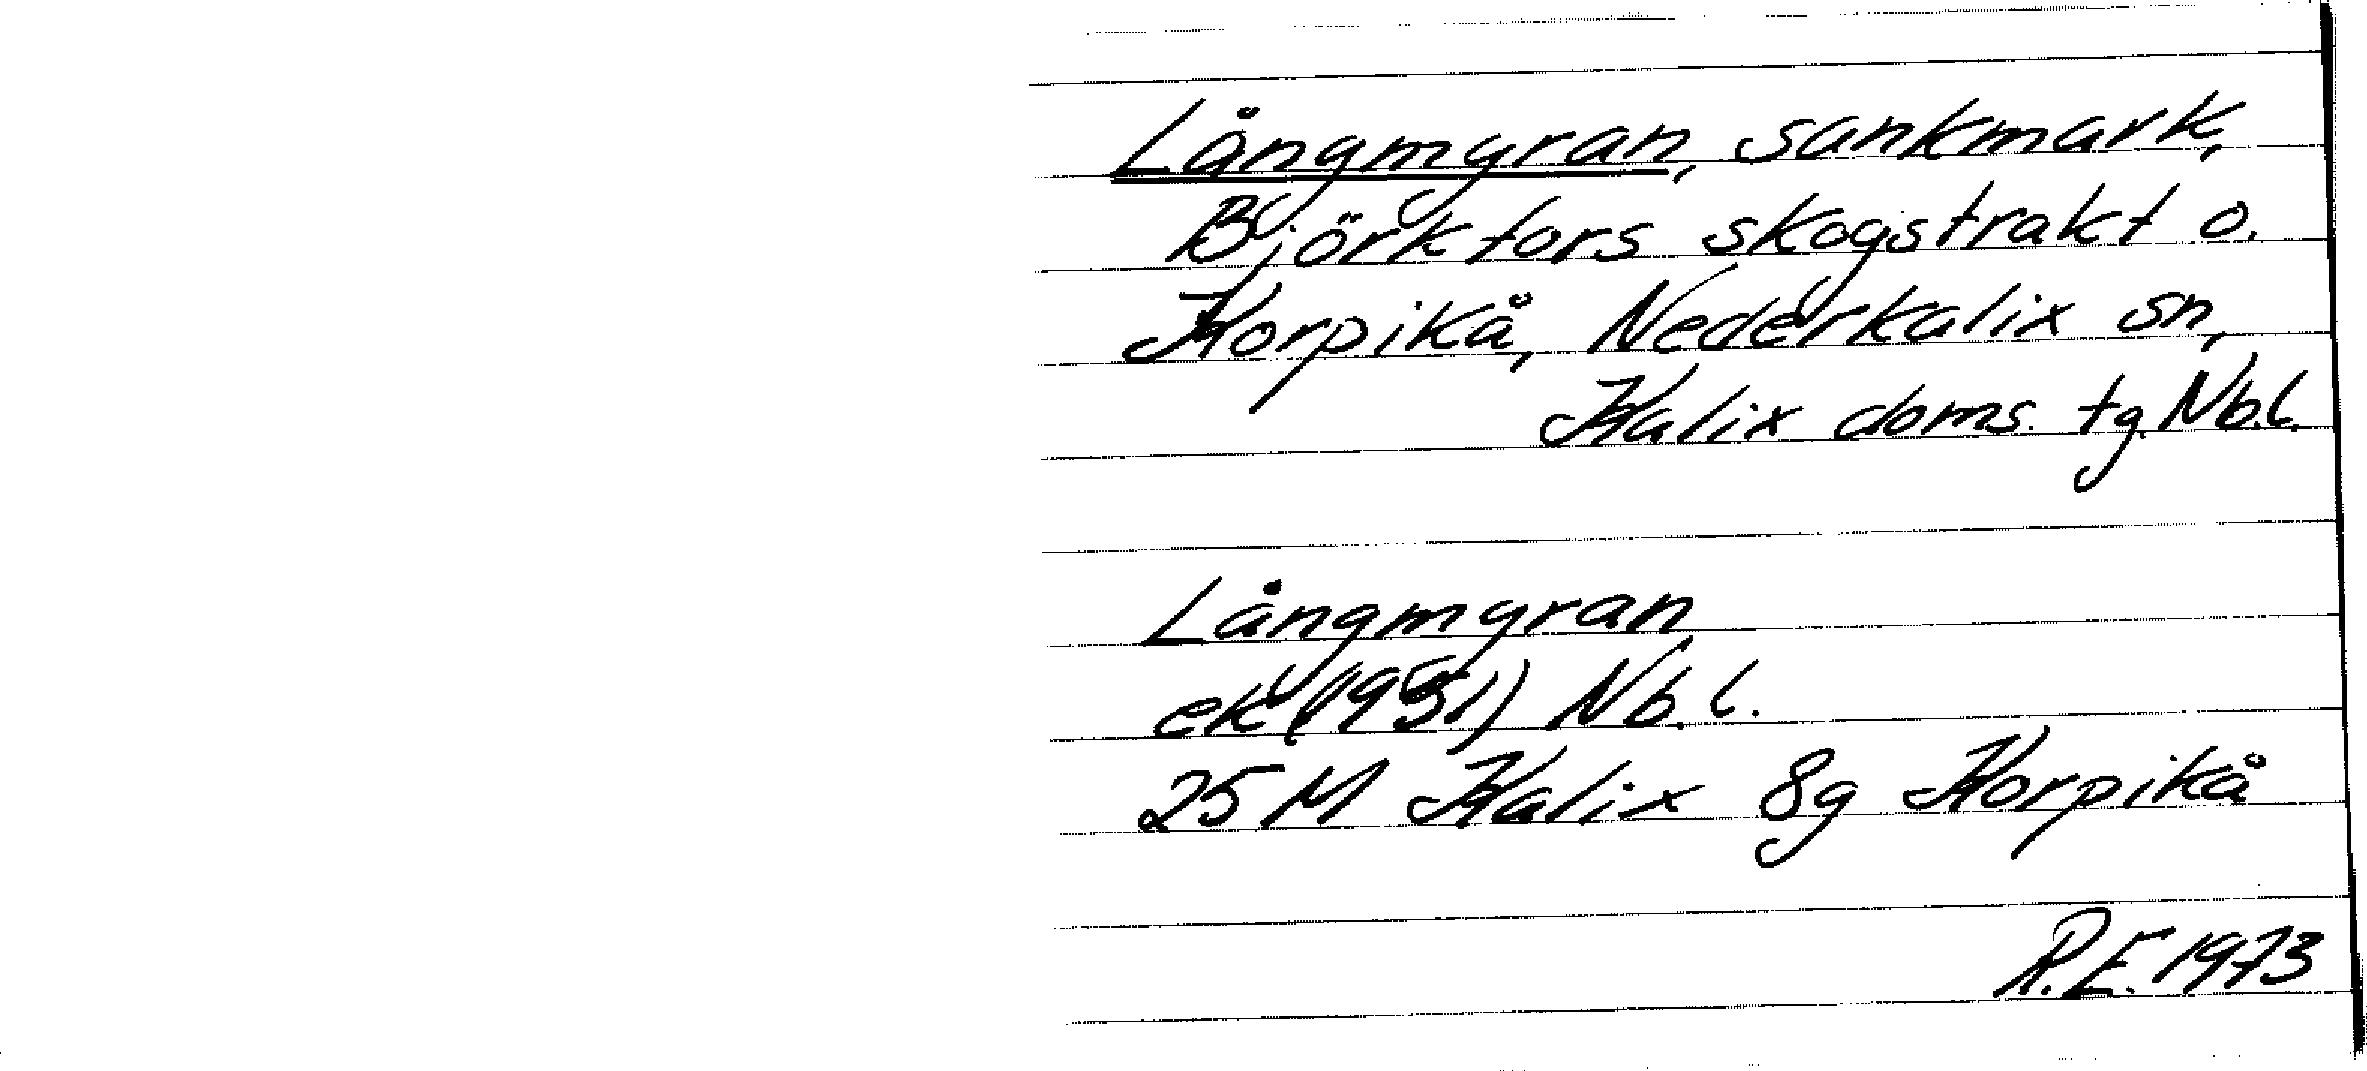 Långmyran, sankmark,
Björkfors skogstrakt o.
Korpikå, Nederkalix sn,
Kalix doms. tg. Nb.l.
Långmyran
ek (1951) Nb.l.
25 M Kalix 8g Korpikå
R.E. 1973